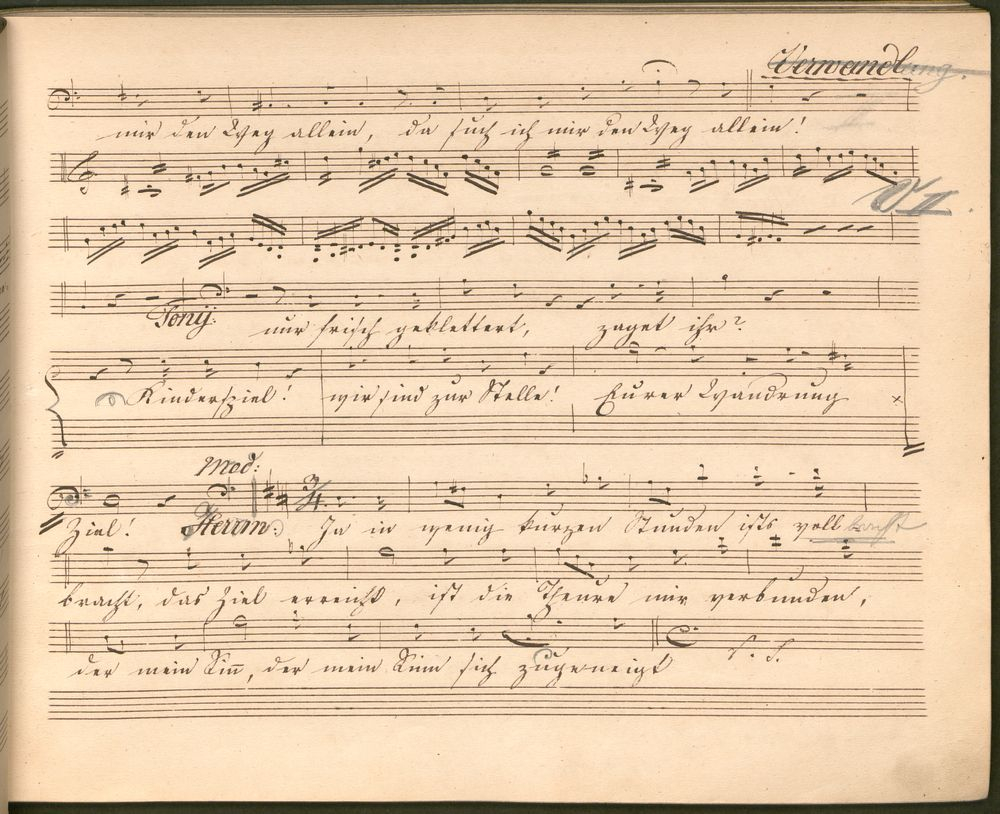 Verwandlung.
mir den Weg allein, da such ich mir den Weg allein!
Tonij:
nur frisch geklettert, zaget ihr?
Kinderspiel! wir sind zur Stelle! Eurer Wandrung
Mod:
Ziel! Herm: Ja in wenig kurzen Stunden ists voll
bracht, das Ziel erreicht, ist die Theure mir verbunden,
der mein Sin̅, der mein Sinn sich zugeneigt